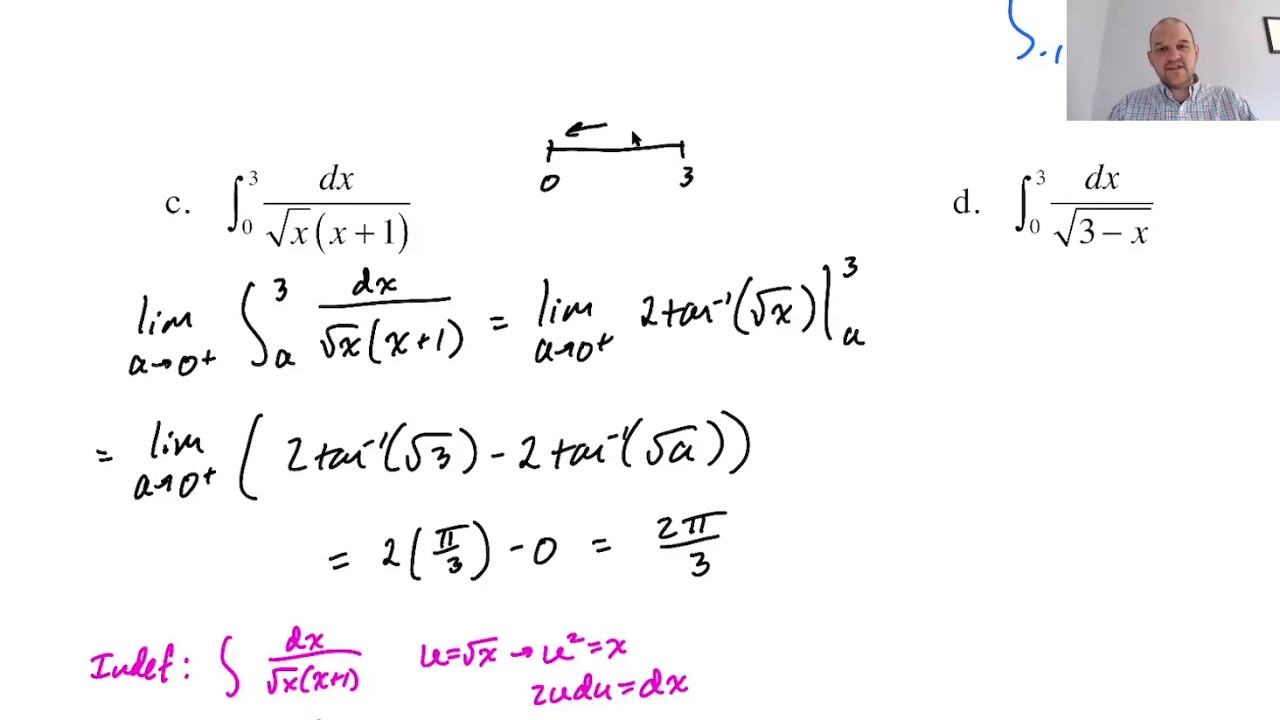 0 3
c. ∫_0^3 dx / (√x (x + 1))
d. ∫_0^3 dx / √(3 − x)
lim a→0⁺ ∫_a^3 dx / (√x (x+1)) = lim a→0⁺ 2tan⁻¹(√x) |_a^3
= lim a→0⁺ (2tan⁻¹(√3) - 2tan⁻¹(√a))
= 2(π/3) - 0 = 2π/3
Indef: ∫ dx / (√x(x+1)) u=√x → u²=x
2udu=dx